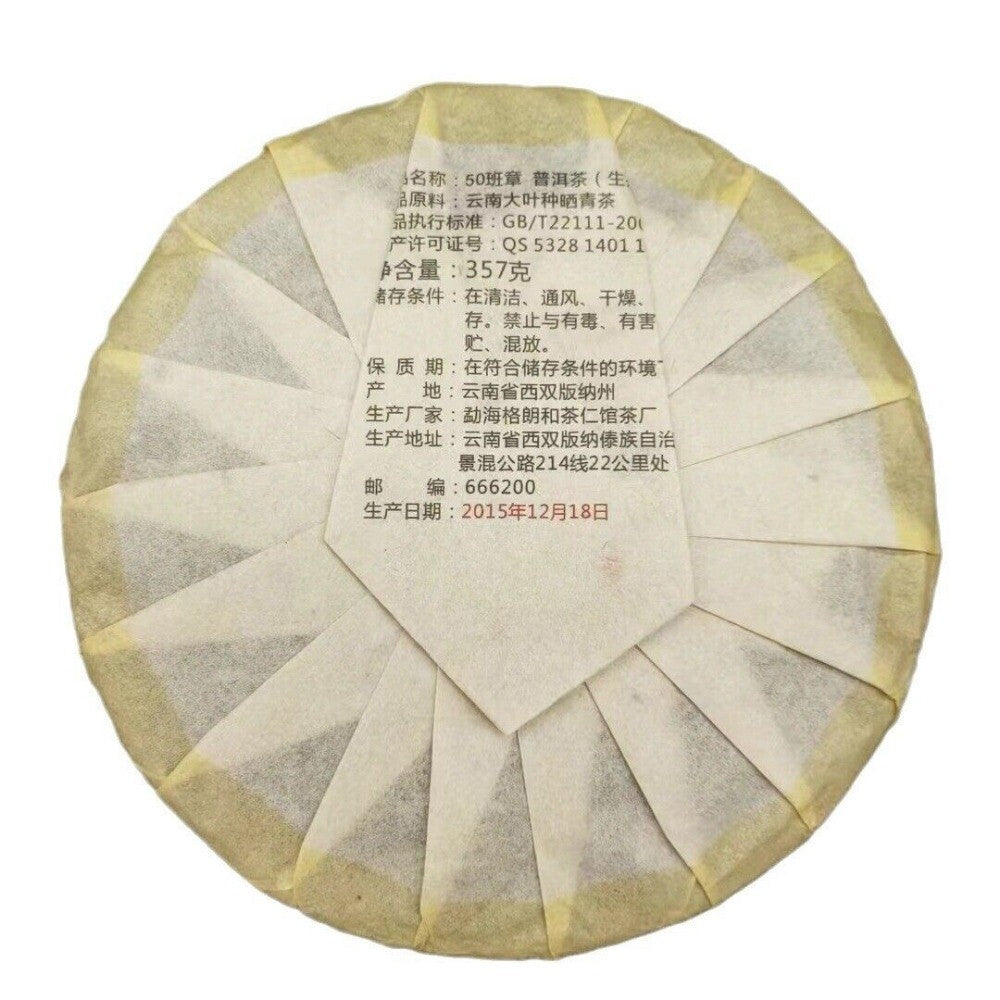 名称：50班章 普洱茶（生
品原料：云南大叶种晒青茶
品执行标准：GB/T22111-200
产许可证号：QS 5328 1401 1
净含量：357克
储存条件：在清洁、通风、干燥、
存。禁止与有毒、有害
贮、混放。
保 质 期：在符合储存条件的环境下
产 地：云南省西双版纳州
生产厂家：勐海格朗和茶仁馆茶厂
生产地址：云南省西双版纳傣族自治
景混公路214线22公里处
邮 编：666200
生产日期：2015年12月18日